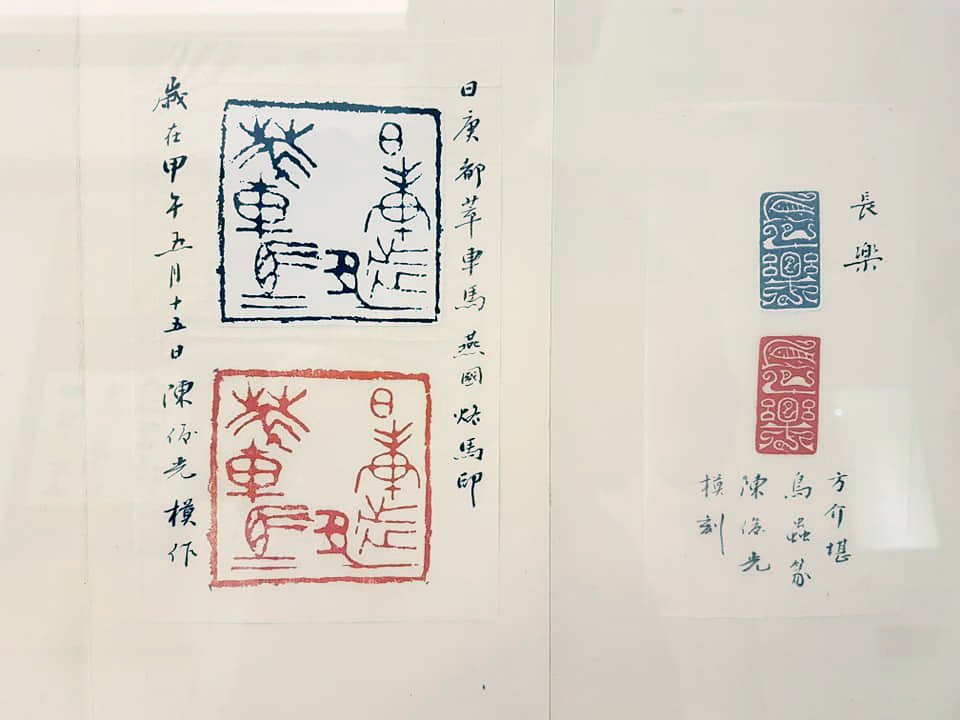 日庚都萃車馬 燕國烙馬印
歲在甲午五月十五日 陳 光模作
長樂
方介堪
鳥蟲篆
陳 光
模刻